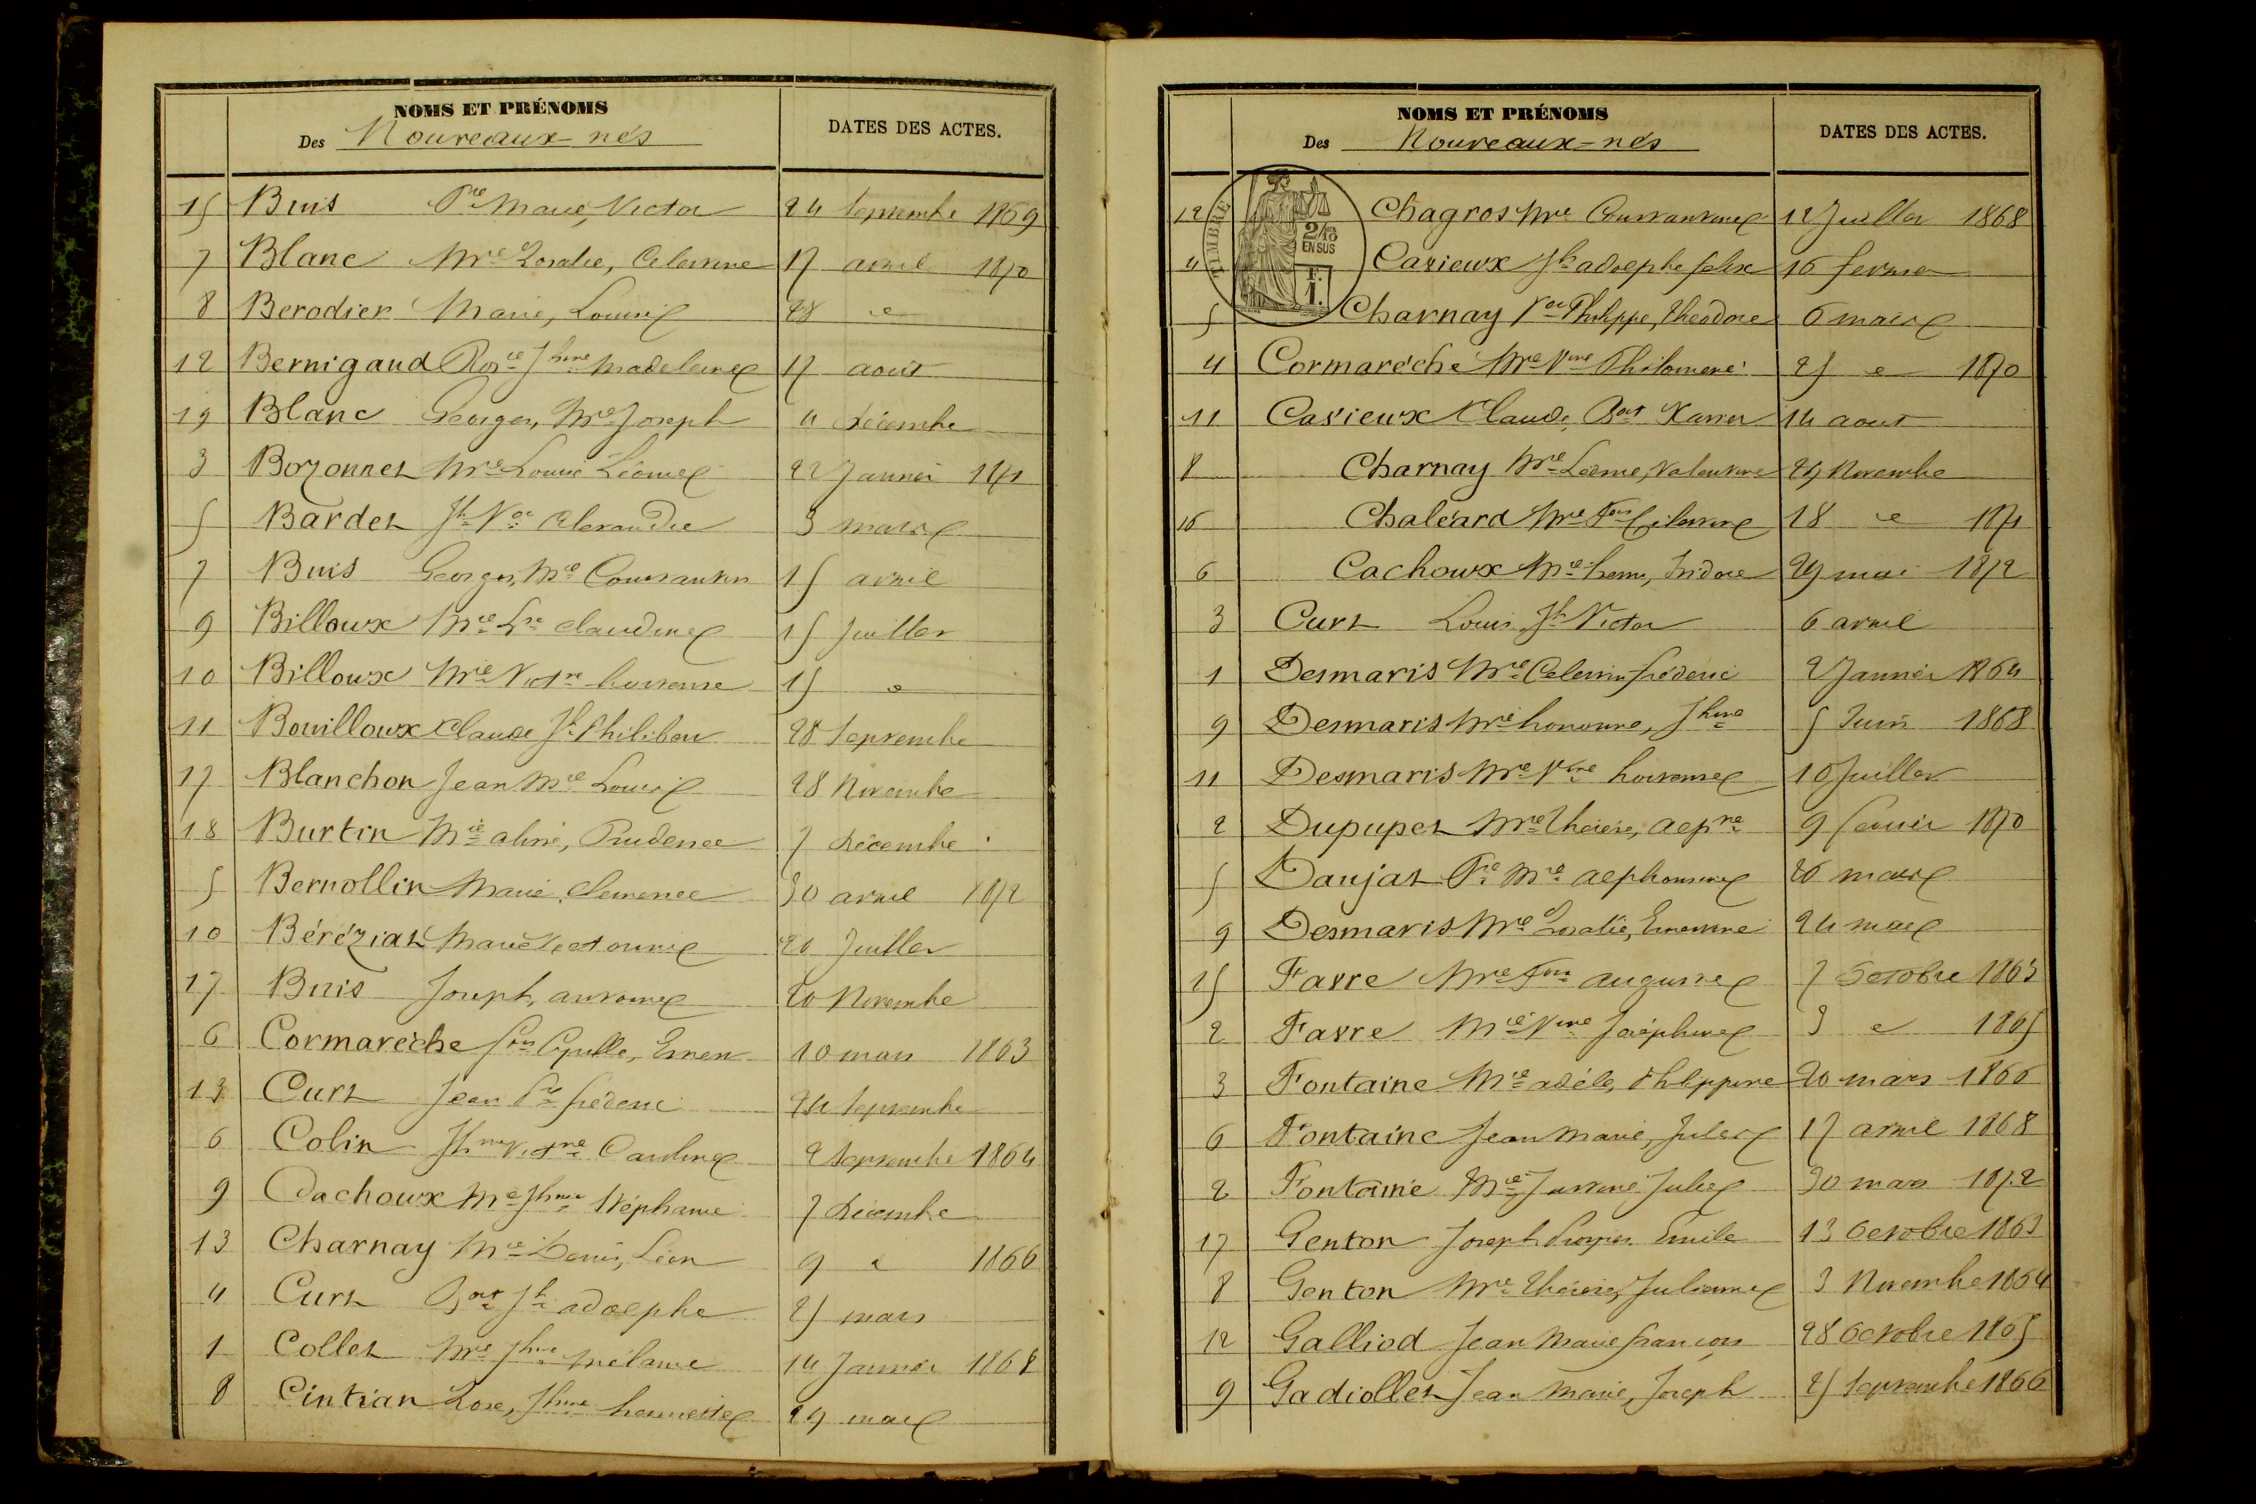 NOMS ET PRÉNOMS
Des Nouveaux-nés
DATES DES ACTES.
15 Buis Pre Marie, Victor 24 Septembre 1869
7 Blanc Mie Rosalie, Célestine 17 avril 1870
8 Berodier Marie, Louise 28 d
12 Bernigaud Jhne Madeleine 17 août
19 Blanc Georges, Me Joseph 4 Décembre
3 Bozonnet Mie Louise Léonie 22 Janvier 1871
5 Bardet Jh Vor Alexandre 3 mars
7 Buis Georges, Me Constantin 15 avril
9 Billoux Mie Lse Claudine 15 Juillet
10 Billoux Mie Victne hortense 15 d
11 Bouilloux Claude Jh Philibert 28 Septembre
17 Blanchon Jean Mie Louis 28 Novembre
18 Burtin Mie aline, Prudence 7 Décembre
5 Bernollin Marie, Clémence 30 avril 1872
10 Béréziat Marie Victorine 20 Juillet
17 Buis Joseph, antoine 20 Novembre
6 Cormarèche Fois Cyrille, Ernest 10 mars 1863
13 Curt Jean Pre frédéric 24 Septembre
6 Colin Jhne Victne Caroline 2 Septembre 1864
9 Cachoux Me Jhne Stéphanie 7 Décembre
13 Charnay Mie Denis, Léon 9 d 1866
4 Curt Jh adolphe 25 mars
1 Collet Mie Jhne Mélanie 14 Janvier 1868
8 Cintian Rose, Jhne henriette 29 mai
NOMS ET PRÉNOMS
Des Nouveaux-nés
DATES DES ACTES.
TIMBRE
2/10
EN SUS
F.
1.
12 Chagros Mie Constantine 12 Juillet 1868
4 Casieux Jh adolphe felix 16 fevrier
5 Charnay Vor Philippe, Théodore 6 mars
4 Cormarèche Mie Vne Philomène 25 d 1870
11 Casieux Claude, Xavier 14 aout
8 Charnay Mie Léonie, Valentine 29 Novembre
16 Chaléard Mie Célestine 18 d 1871
6 Cachoux Mie Isidore 29 mai 1872
3 Curt Louis Jh Victor 6 avril
1 Desmaris Mie Célestin frédéric 2 Janvier 1864
9 Desmaris Mie honorine, Jhne 5 Juin 1868
11 Desmaris Mie Vne hortense 10 Juillet
2 Dupupet Mie Thérèse, Alpne 9 fevrier 1870
5 Daujat Pre Mie Alphonse 26 mars
9 Desmaris Mie Rosalie, Ernestine 24 mai
15 Favre Mie Augustine 7 Octobre 1863
2 Favre Mie Vne Joséphine 3 d 1865
3 Fontaine Mie adèle, Philippine 20 mars 1866
6 Fontaine Jean Marie, Jules 17 avril 1868
2 Fontaine Mie Justine Julie 30 mars 1872
17 Genton Joseph Prosper Emile 13 Octobre 1863
8 Genton Mie Thérèse, Julienne 3 Novembre 1864
12 Galliod Jean Marie françois 28 Octobre 1865
9 Gadiollet Jean Marie, Joseph 25 Septembre 1866